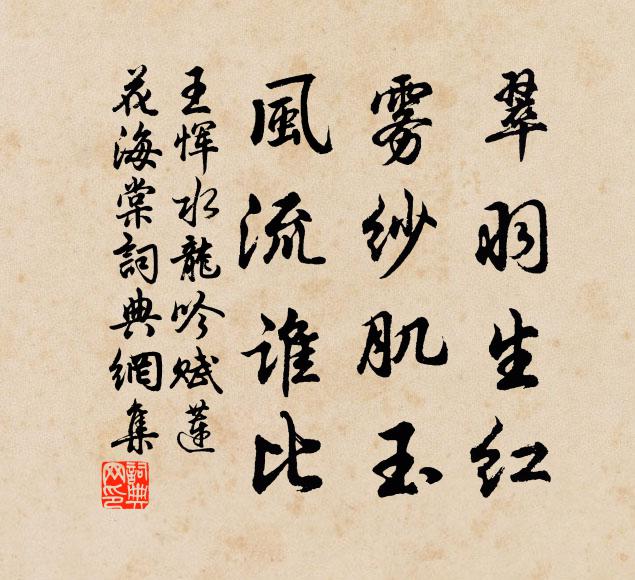 翠羽生红
雾纱肌玉
風流谁比
王恽水龍吟赋蓮
花海棠詞典網集
詞典
网印